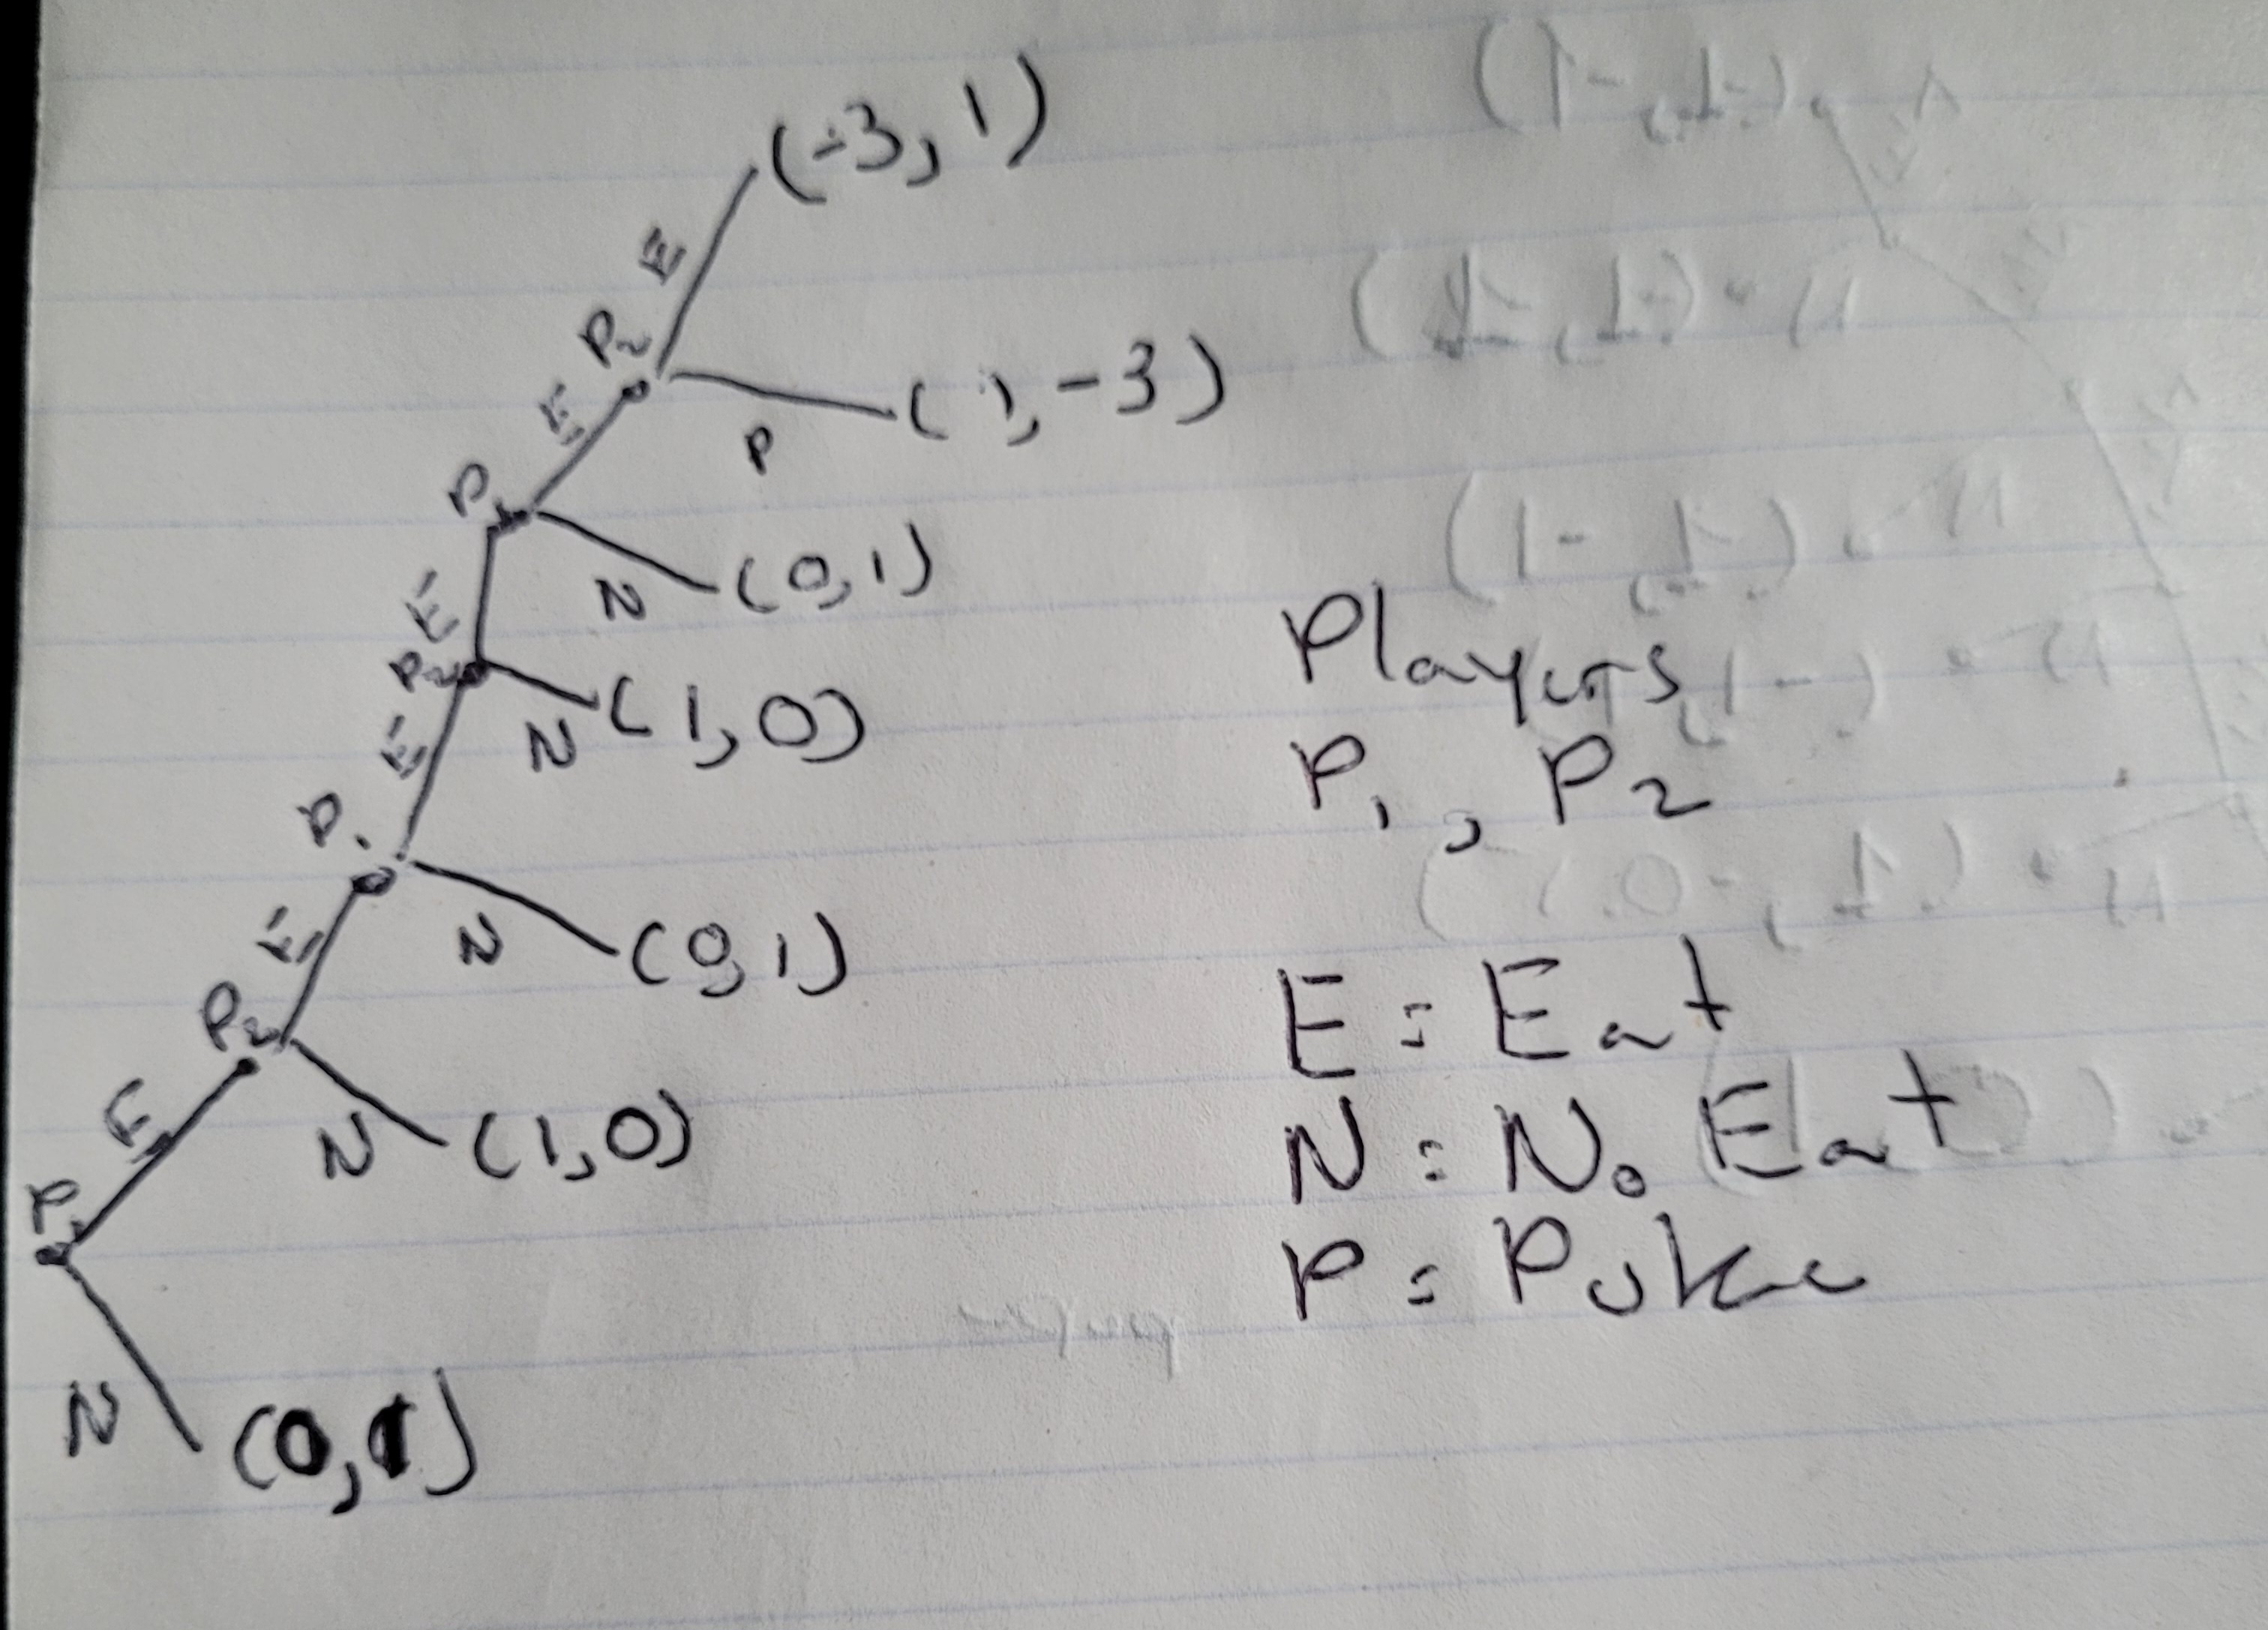 (-3, 1)
E
P2
E
(1, -3)
P
P1
N
(0, 1)
E
P2
N
(1, 0)
E
P1
N
(0, 1)
E
P2
N
(1, 0)
E
P1
N
(0, 1)
Players
P1, P2
E = Eat
N = No Eat
P = Puke